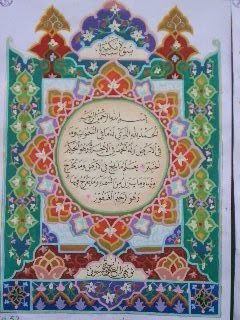 بسم الله الرحمن الرحيم
الحمد لله الذي له ما في السموت وما
في الارض وله الحمد في الاخرة وهو الحكيم
الخبير يعلم ما يلج في الارض وما يخرج
منها وما ينزل من السماء وما يعرج فيها
وهو الرحيم الغفور